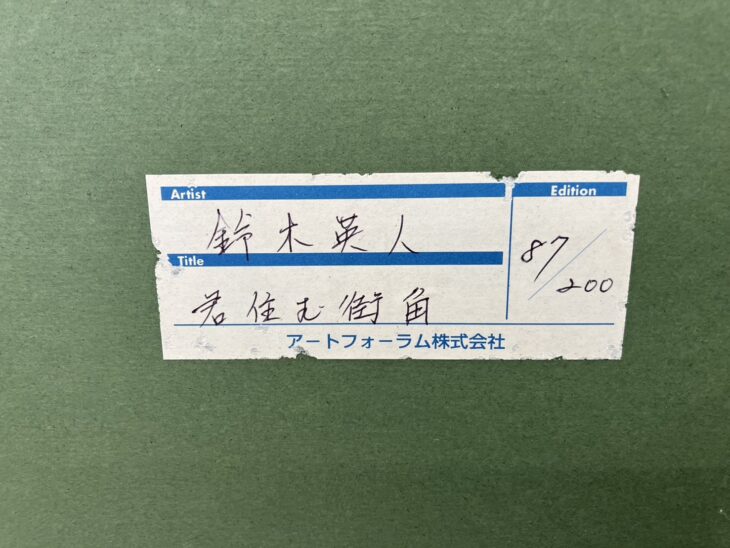 Artist
鈴木英人
Title
君住む街角
Edition
87/200
アートフォーラム株式会社